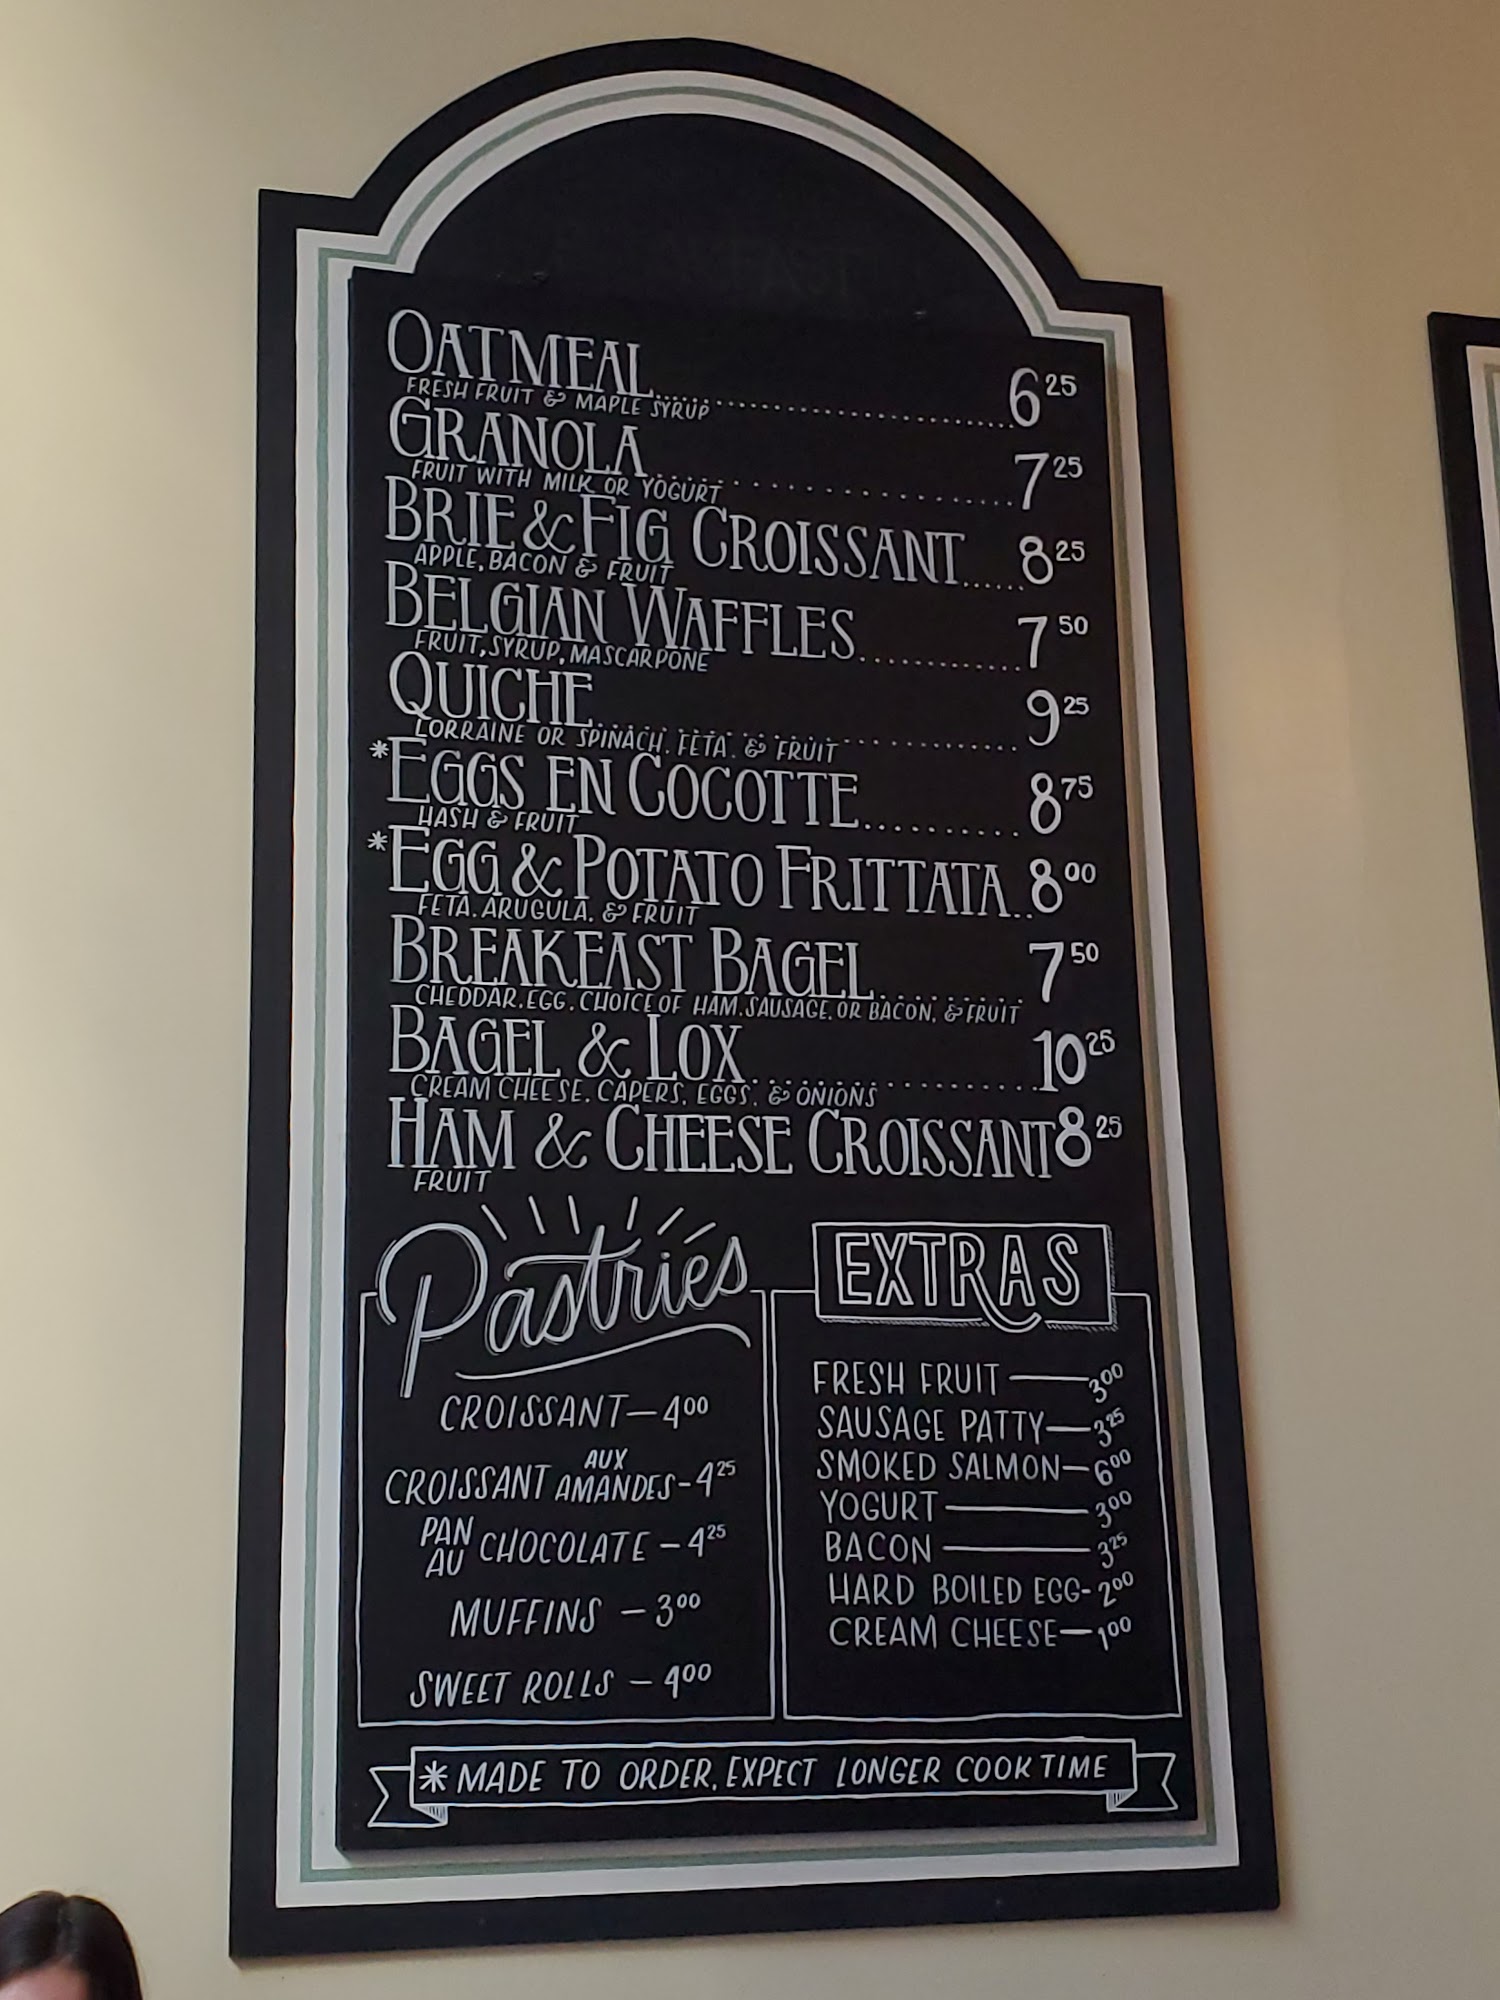 OATMEAL 6 25
FRESH FRUIT & MAPLE SYRUP
GRANOLA 7 25
FRUIT WITH MILK OR YOGURT
BRIE & FIG CROISSANT 8 25
APPLE, BACON & FRUIT
BELGIAN WAFFLES 7 50
FRUIT, SYRUP, MASCARPONE
QUICHE 9 25
LORRAINE OR SPINACH, FETA, & FRUIT
*EGGS EN COCOTTE 8 75
HASH & FRUIT
*EGG & POTATO FRITTATA 8 00
FETA, ARUGULA, & FRUIT
BREAKFAST BAGEL 7 50
CHEDDAR, EGG, CHOICE OF HAM, SAUSAGE, OR BACON, & FRUIT
BAGEL & LOX 10 25
CREAM CHEESE, CAPERS, EGGS, & ONIONS
HAM & CHEESE CROISSANT 8 25
FRUIT
Pastries
CROISSANT — 4 00
CROISSANT AUX AMANDES - 4 25
PAN AU CHOCOLATE - 4 25
MUFFINS - 3 00
SWEET ROLLS - 4 00
EXTRAS
FRESH FRUIT — 3 00
SAUSAGE PATTY — 3 25
SMOKED SALMON — 6 00
YOGURT — 3 00
BACON — 3 25
HARD BOILED EGG - 2 00
CREAM CHEESE — 1 00
*MADE TO ORDER, EXPECT LONGER COOK TIME